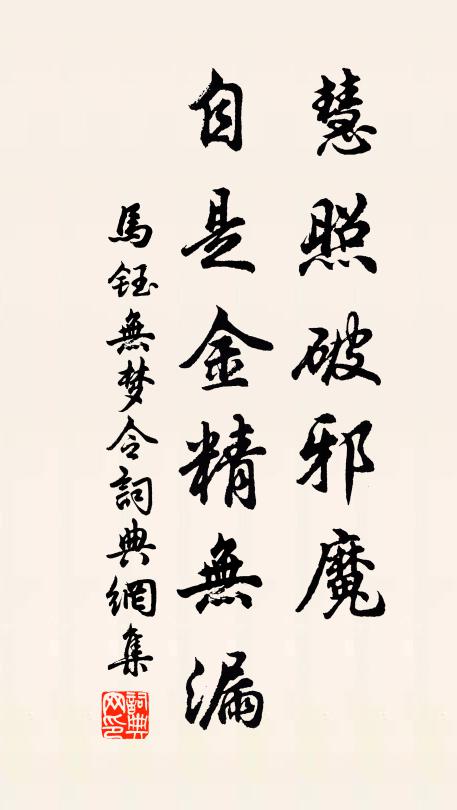 慧照破邪魔
自是金精無漏
馬鈺無梦令詞典網集
詞典网印